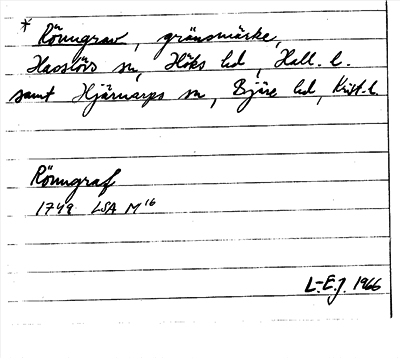 * Rönngrav, gränsmärke,
Hasslövs sn, Höks hd, Hall. l.
samt Hjärnarps sn, Bjäre hd, Krist. l.
Rönngraf
1749 LSA M16
L-E.J. 1966